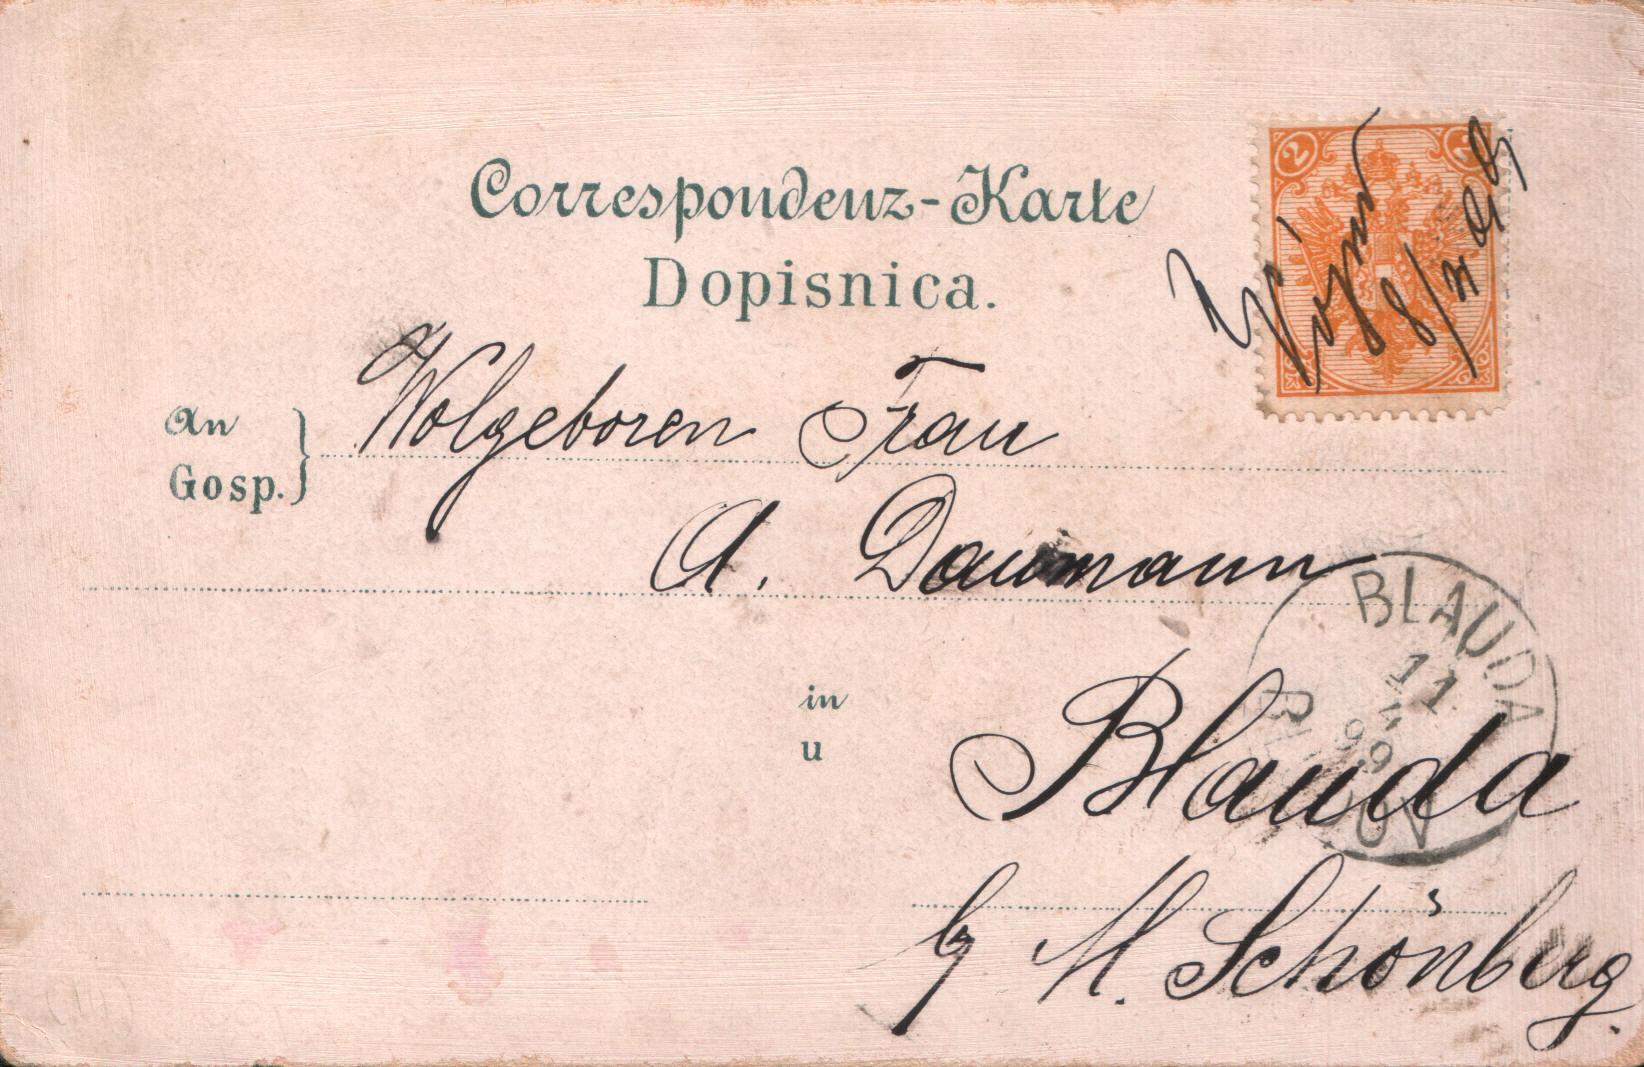 Correspondenz-Karte
Dopisnica.
2 2
8/4 99
An
Gosp.
Wolgeboren Frau
A. Daumann
BLAUDA
11
4
99
in
u
Blauda
b/ M. Schönberg.